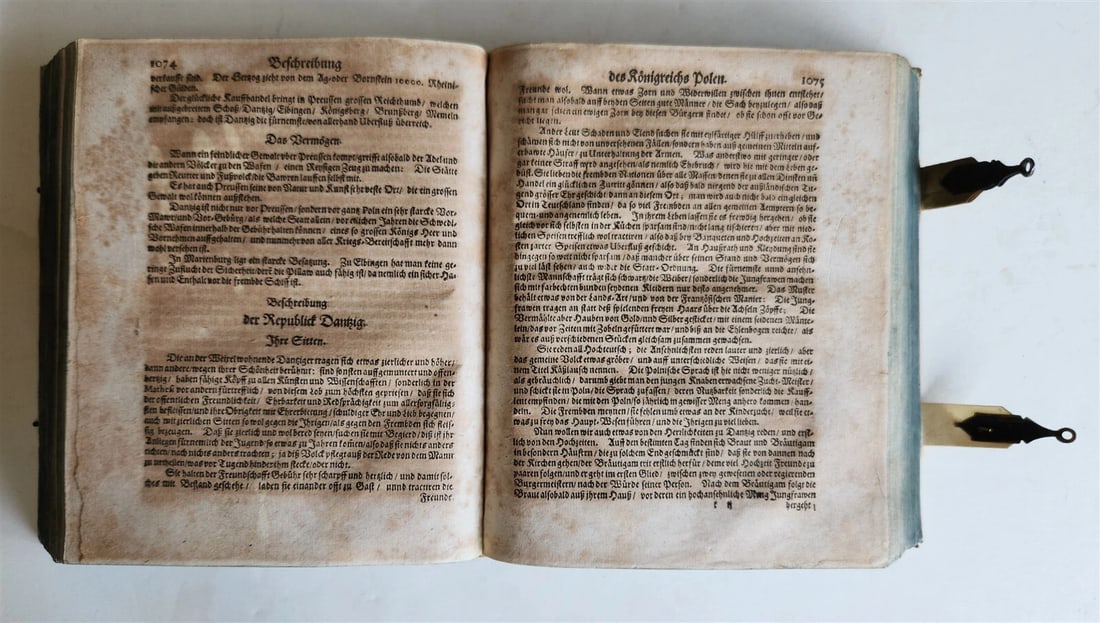 1074 Beschreibung
verkaufft sind. Der Hertzog zieht von dem Ag- oder Bornstein 10000. Rheini-
scher Gülden.
Der glückliche Kauffhandel bringt in Preussen grossen Reichthumb / welchen
mit außgebreitem Schoß Dantzig / Elbingen / Königsberg / Brunßberg / Memeln
empfangen: doch ist Dantzig die fürnemste / von allerhand Uberfluß überreich.
Das Vermögen.
Wann ein feindlicher Gewalt uber Preussen kompt / greifft alsobald der Adel und
die andern Völcker zu den Waffen / einen Reysigen Zeug zu machen: Die Stätte
geben Reutter und Fußvolck / die Bawren lauffen selbst mit.
Es hat auch Preussen seine von Natur und Kunst sehr veste Ort / die ein grossen
Gewalt wol können außstehen.
Dantzig ist nicht nur vor Preussen / sondern vor gantz Poln ein sehr starcke Vor-
Mawr / und Vor-Gebürg / als welche Statt allein / vor etlichen Jahren die Schwedi-
sche Waffen innerhalb der Gebühr halten können / eines so grossen Königs Heer und
Vornehmen auffgehalten / und nunmehr von aller Kriegs-Bereitschafft mehr dann
wohl versehen ist.
In Marienburg ligt ein starcke Besatzung. Zu Elbingen hat man keine ge-
ringe Zuflucht der Sicherheit / derẽ die Pillaw auch fähig ist / da nemlich ein sicher Ha-
fen und Enthalt vor die frembde Schiff ist.
Beschreibung
der Republick Dantzig.
Ihre Sitten.
Die an der Weixel wohnende Dantziger tragen sich etwas zierlicher und höher /
dann andere / wegen ihrer Schönheit berühmt: sind sonsten auffgemuntert und offen-
hertzig / haben fähige Köpff zu allen Künsten und Wissenschafften / sonderlich in der
vor andern fürtrefflich / von diesem Lob zum höchsten gepriesen / daß sie sich
der offentlichen Freundlichkeit / Ehrbarkeit und Redsprächigkeit zum allersorgfältig-
sten befleissen / und ihre Obrigkeit mit Ehrerbietung / schuldiger Ehr und Lieb begegnen /
auch mit zierlichen Sitten so wol gegen die Ihrigen / als gegen den Frembden sich fleis-
sig bezeugen. Daß sie zierlich und wol beredt seyen / suchen sie mit Begierd / diß ist ihr
Anligen fürnemlich der Jugend / so etwas zu Jahren kommen / also daß sie nichts anders
richten / nach nichts anders trachten; ja diß Volck pflegt auß der Rede von dem Mann
zu urtheilen / was vor Tugend hinder ihm steckt / oder nicht.
Sie halten der Freundschafft Gebühr sehr scharpff und hertzlich / und damit sol-
ches mit Bestand geschehe / laden sie einander offt zu Gast / unnd tractiren die
Freunde
des Königreichs Polen. 1075
Freunde wol. Wann etwas Zorn und Widerwillen zwischen ihnen entstehet /
sicht man alsobald auff beyden Seiten gute Männer / die Sach beyzulegen / also daß
man gar selten ein ewigen Zorn bey diesen Bürgern findet / ob sie schon offt vor Ge-
richt ligen.
Ander Leut Schaden und Elend suchen sie mit eyfferiger Hülff zu
schämen sich nicht von unversehenen Fällen / sondern haben auß gemeinen Mitteln auff-
erbawte Häuser / zu Unterhaltung der Armen. Was anderstwo mit geringer / oder
gar keiner Straff wird angesehen / als nemlich Ehbruch / wird hie mit dem Leben ge-
büst. Sie lieben die frembden Nationen über alle Massen / denen sie zu allen Diensten uñ
Handel ein glücklichen Zutritt gönnen / also daß bald nirgend der außländischen Tu-
gend grösser Ehr geschicht / dann an diesem Ort; man wird auch nicht bald ein gleichen
Ort in Teutschland finden / da so viel Frembden an allen gemeinen Aemptern so be-
quem und angenemlich leben. In ihrem Leben lassen sie es frewdig hergehen / ob sie
gleich vor sich selbsten in der Küchen sparsam sind / nicht lang tischierten / aber mit nied-
lichen Speisen trefflich wol tractiren / also daß bey Banqueten und Hochzeiten an Ko-
sten zarter Speisen etwas Uberfluß geschicht. An Haußrath und Kleydung sind sie
hingegen so weit nicht sparsam / daß mancher über seinen Stand und Vermögen sich
zu viel läst sehen / auch wider die Statt-Ordnung. Die fürnemste unnd ansehn-
lichste Mannschafft trägt sich schwartz / die Weiber / sonderlich die Jungfrawen machen
sich mit farbechten bunden seydenen Kleidern nur desto angenehmer. Das Muster
behält etwas von der Lands-Art / und von der Frantzösischen Manier: Die Jung-
frawen tragen an statt deß spielenden freyen Haars über die Achseln Zöpffe; Die
Vermählte aber Hauben von Gold / und Silber gesticket / mit einem seidenen Mänte-
lein / das vor Zeiten mit Zobeln gefüttert war / und biß an die Ehlenbogen reichte / als
wäre es auß verschiedenen Stücken gleichsam zusammen gewachsen.
Sie reden all Hochteutsch; die Ansehnlichsten reden lauter und zierlich / aber
das gemeine Volck etwas gröber / und auff unterschiedliche Weisen / das sie mit ei-
nem Titel Käßlausch nennen. Die Polnische Sprach ist ihe nicht weniger nützlich /
als gebräuchlich / darumb giebt man den jungen Knaben erwachsene Zucht-Meister /
und schickt sie in Poln / die Sprach zu fassen / deren Nutzbarkeit sonderlich die Kauff-
leut empfinden / die mit den Poln / so jährlich in gewisser Meng anhero kommen / han-
deln. Die Frembden meynen / sie fehlen umb etwas an der Kinderzucht / weil sie et-
was zu frey das Haupt-Wesen führen / und die Ihrigen zu viel lieben.
Nun wollen wir auch etwas von den Herrlichkeiten zu Dantzig reden / und erst-
lich von den Hochzeiten. Auff den bestimten Tag finden sich Braut und Bräutigam
in besondern Häusern / die zu solchem End geschmückt sind / daß sie von dannen nach
der Kirchen gehen / der Bräutigam tritt erstlich herfür / deme viel Hochzeit Freunde zu
paaren folgen / und er geht im ersten Glied / zwischen zwey gewesenen oder regierenden
Burgermeistern / nach der Würde seiner Person. Nach dem Bräutigam folgt die
Braut alsobald auß ihrem Hauß / vor deren ein hochansehnliche Mäng Jungfrawen
hergeht;